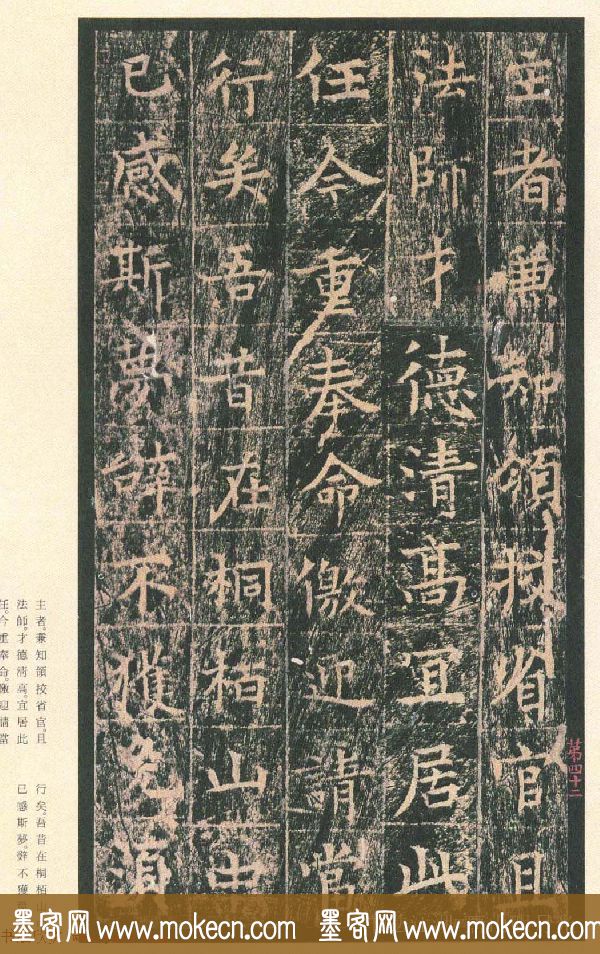 主者兼知領挍省官且
法師才德清高宜居此
任今重奉命儌迎請當
行矣吾昔在桐栢山中
已感斯夢辞不獲免須
第四十二
主者。兼知領挍省官。且
法師。才德清高。宜居此
任。今重奉命。儌迎請當
行矣。吾昔在桐栢山
已感斯夢。辤不獲
墨客网 www.mokecn.com 墨客网 www.mokecn.com